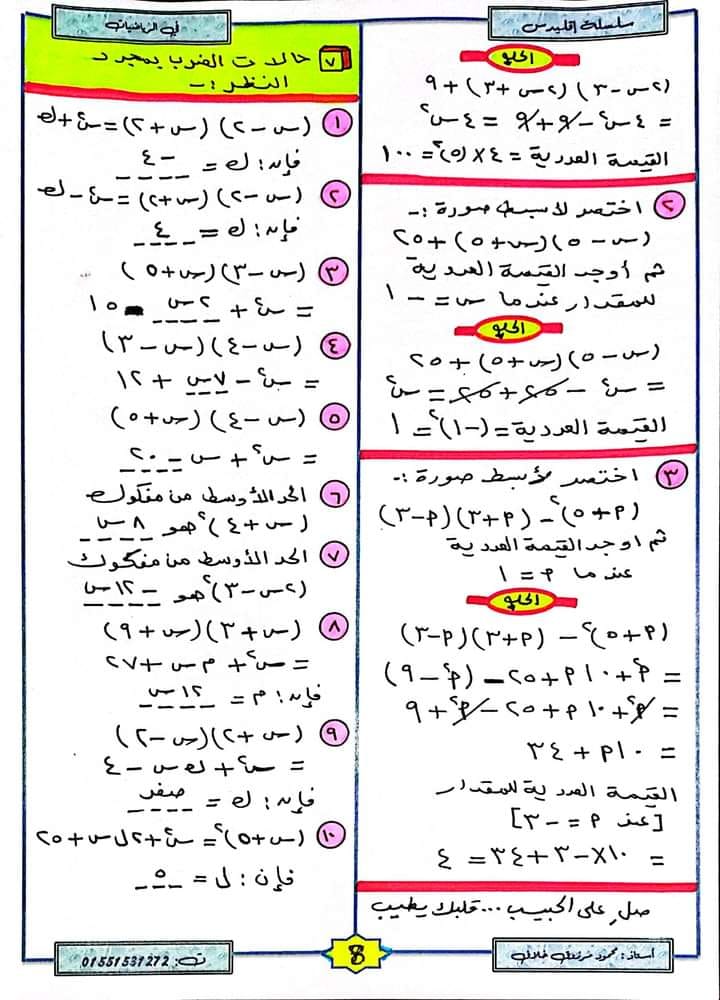 سلسلة إقليدس
في الرياضيات
الحل
(٢س - ٣) (٢س + ٣) + ٩
= ٤س٢ - ٩ + ٩ = ٤س٢
القيمة العددية = ٤ × (٥)٢ = ١٠٠
٢ اختصر لأبسط صورة :-
(س - ٥) (س + ٥) + ٢٥
ثم أوجد القيمة العددية
للمقدار عندما س = - ١
الحل
(س - ٥) (س + ٥) + ٢٥
= س٢ - ٢٥ + ٢٥ = س٢
القيمة العددية = (-١)٢ = ١
٣ اختصر لأبسط صورة :-
(٥ + م)٢ - (م + ٣) (م - ٣)
ثم اوجد القيمة العددية
عندما م = ١
الحل
(٥ + م)٢ - (م + ٣) (م - ٣)
= م٢ + ١٠م + ٢٥ - (م٢ - ٩)
= م٢ + ١٠م + ٢٥ - م٢ + ٩
= ١٠م + ٣٤
القيمة العددية للمقدار
[عند م = - ٣]
= ١٠ × -٣ + ٣٤ = ٤
صلِ على الحبيب ... قلبك يطيب
٧ حالات الضرب بمجرد
النظر :-
١ (س - ٢) (س + ٢) = س٢ + ك
فإن : ك = - ٤
٢ (س - ٢) (س + ٢) = س٢ - ك
فإن : ك = ٤
٣ (س - ٣) (س + ٥)
= س٢ + ٢س - ١٥
٤ (س - ٤) (س - ٣)
= س٢ - ٧س + ١٢
٥ (س - ٤) (س + ٥)
= س٢ + س - ٢٠
٦ الحد الأوسط من مفكوك
(س + ٤)٢ هو ٨س
٧ الحد الأوسط من مفكوك
(٢س - ٣)٢ هو - ١٢س
٨ (س + ٣) (س + ٩)
= س٢ + م س + ٢٧
فإن : م = ١٢س
٩ (س + ٢) (س - ٢)
= س٢ + ك س - ٤
فإن : ك = صفر
١٠ (س + ٥)٢ = س٢ + ٢ل س + ٢٥
فإن : ل = ٥
أستاذ : محمود
8
ت : 01551531272